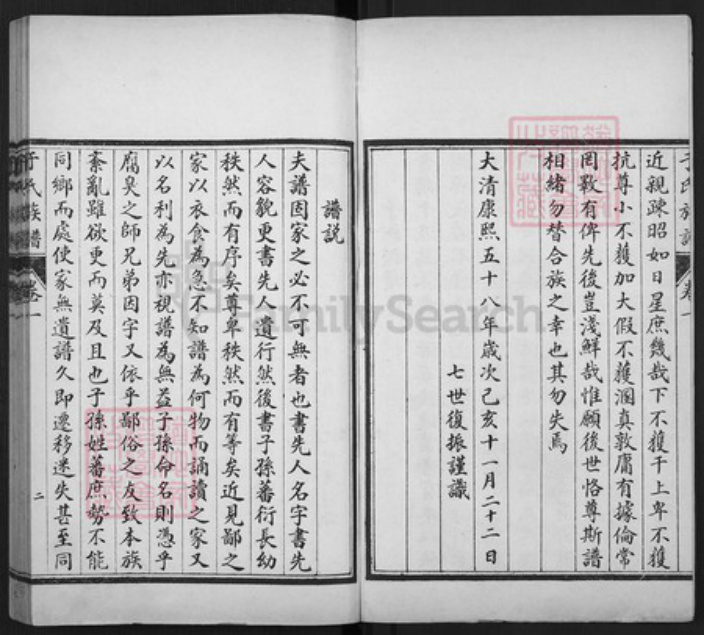 近親疎昭如日星庶幾哉下不獲干上卑不獲
抗尊小不獲加大假不獲溷真敦庸有據倫常
罔斁有俾先後豈淺鮮哉惟願後世恪尊斯譜
相緒勿替合族之幸也其勿失焉
大清康熙五十八年歲次己亥十一月二十二日
七世復振謹識
譜説
夫譜固家之必不可無者也書先人名字書先
人容貌更書先人遺行然後書子孫蕃衍長幼
秩然而有序矣尊卑秩然而有等矣近見鄙之
家以衣食為急不知譜為何物而誦讀之家又
以名利為先亦視譜為無益子孫命名則憑乎
腐臭之師兄弟因字又依乎鄙俗之友致本族
紊亂雖欲更而莫及且也子孫姓蕃庶勢不能
同鄉而處使家無遺譜久即遷移迷失甚至同
于氏族譜
卷一
二
FamilySearch